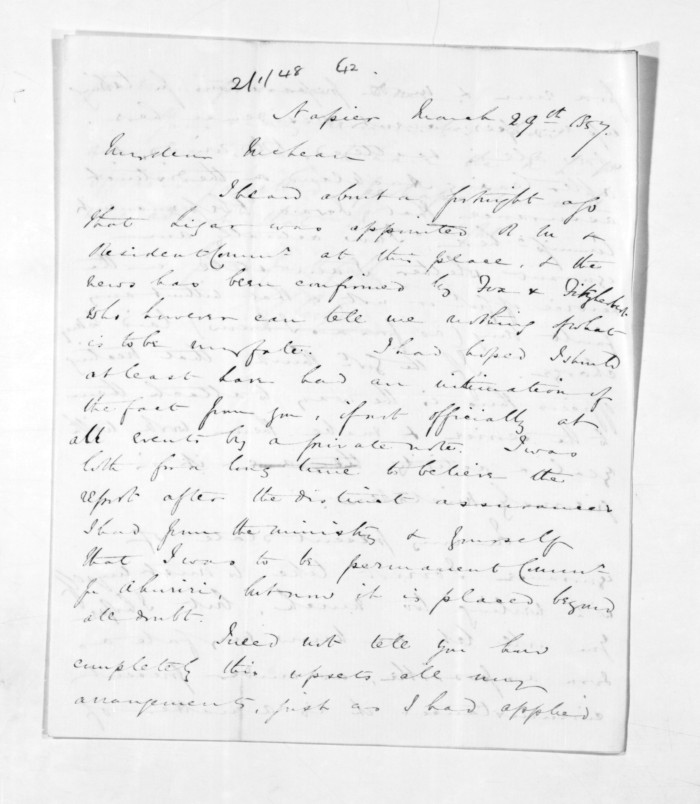 2/1/48 62.
Napier March 29th 1857
My dear McLean
I heard about a fortnight ago
that Ligar was appointed R M &
Resident Commr at this place, & the
news has been confirmed by Fox & Fitzherbert
who however can tell me nothing of what
is to be my fate. I had hoped I should
at least have had an intimation of
the fact from you, if not officially at
all events by a private note. I was
loth for a long time to believe the
report after the distinct assurances
I had from the ministry & yourself
that I was to be permanent Commr
for Ahuriri, but now it is placed beyond
all doubt.
I need not tell you how
completely this upsets all my
arrangements, just as I had applied